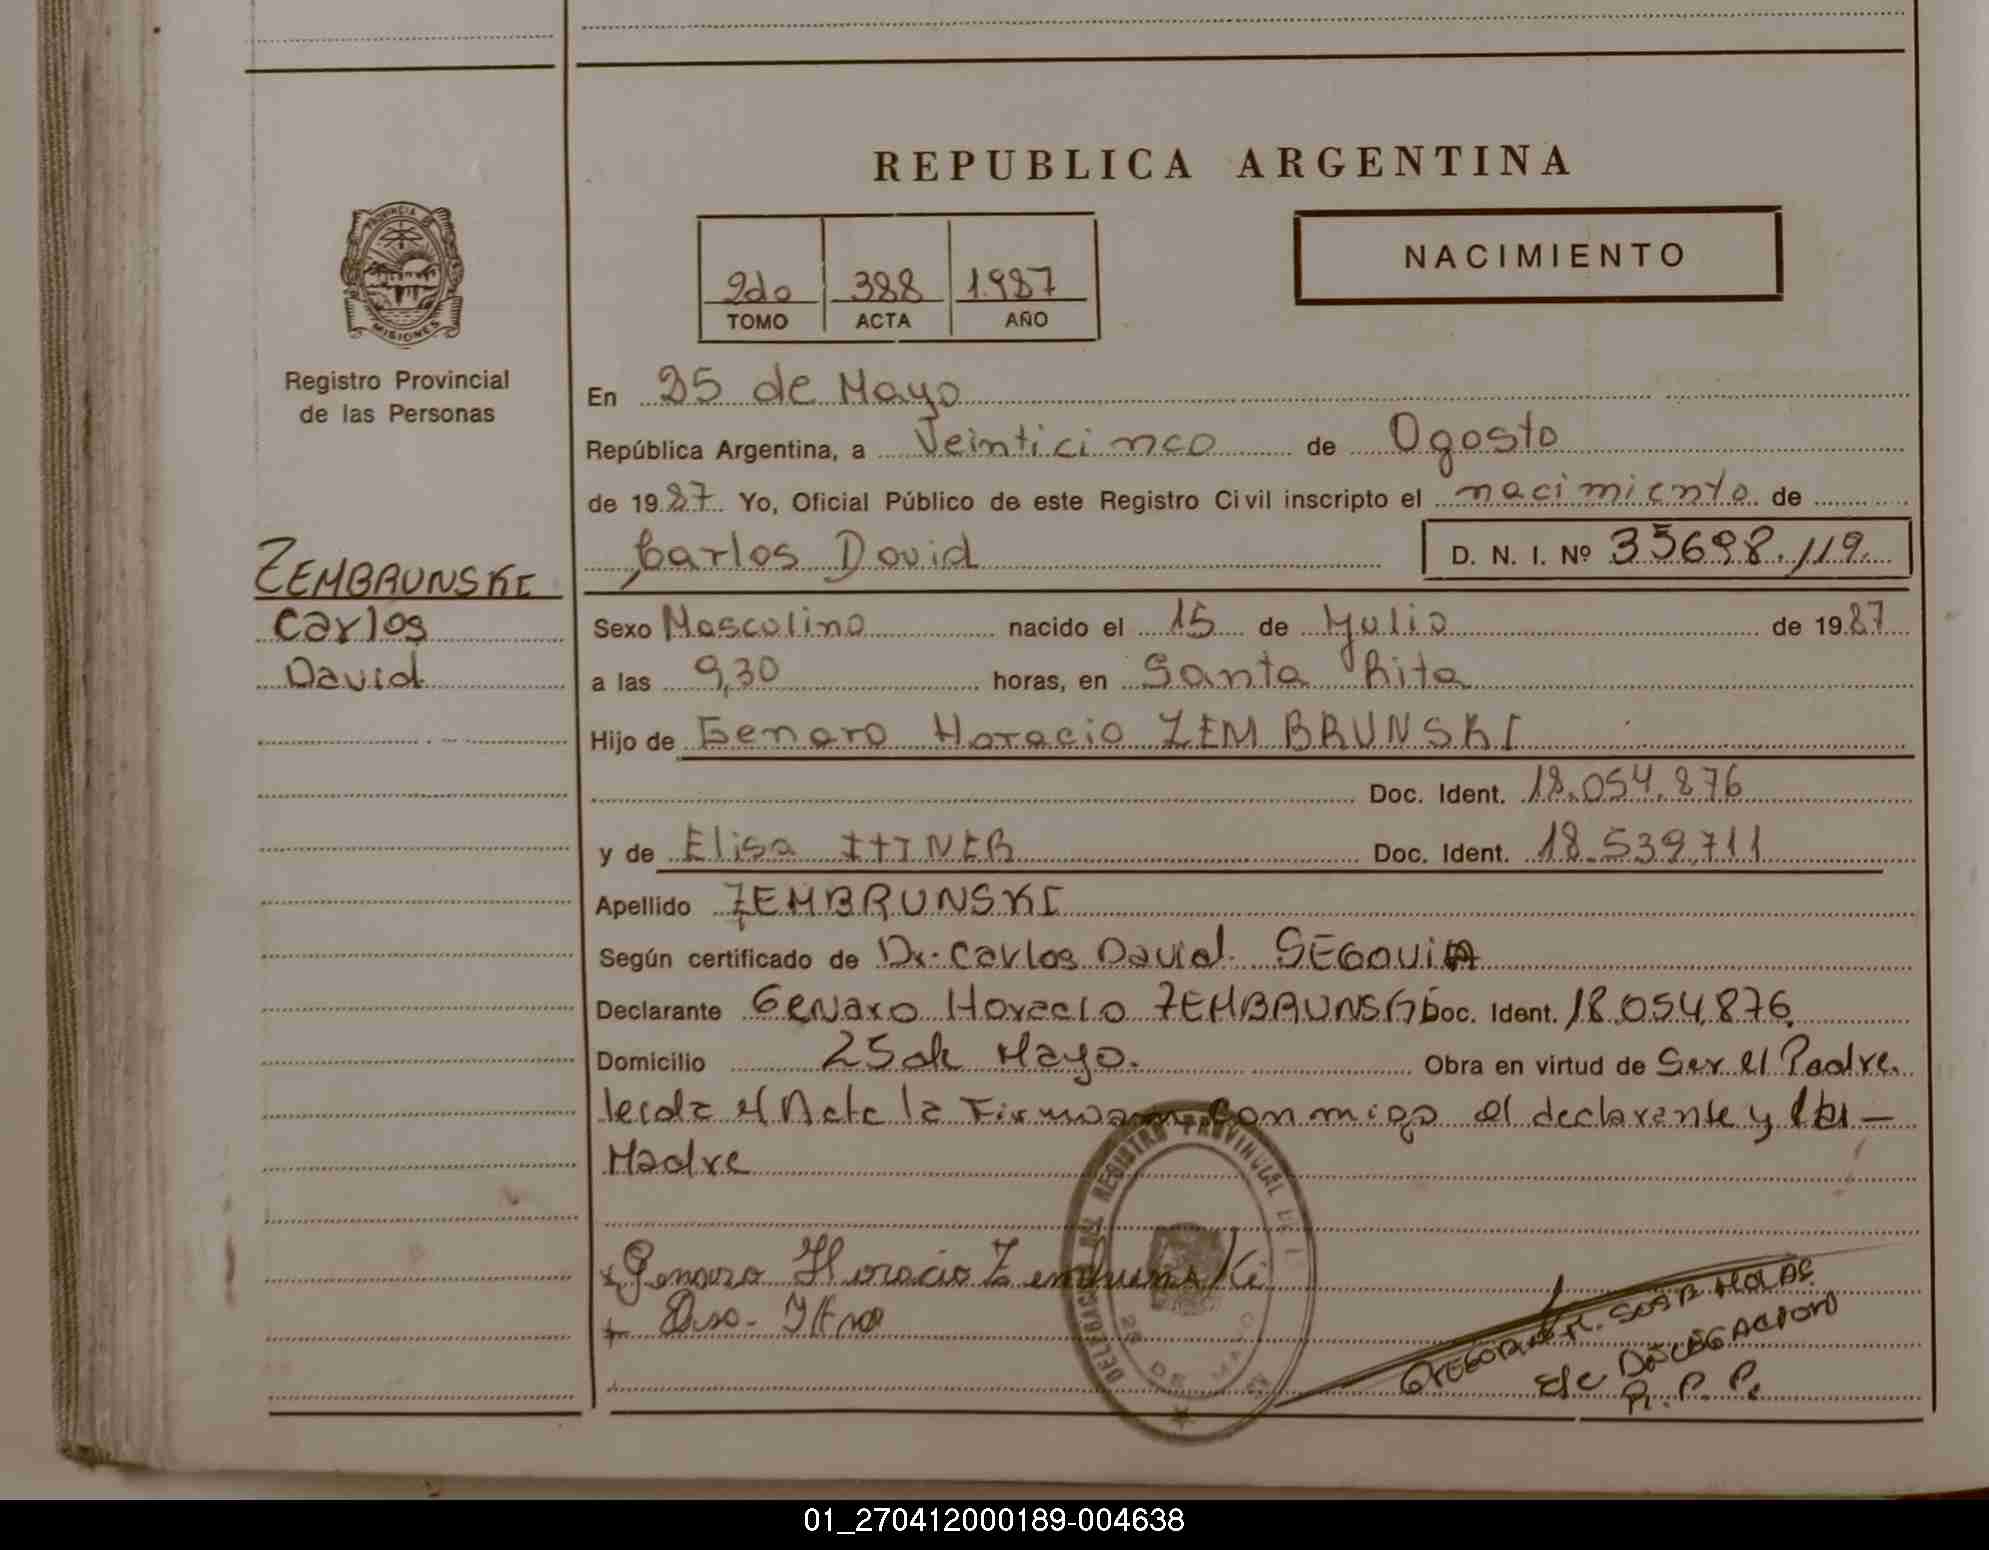 REPUBLICA ARGENTINA
NACIMIENTO
2do 388 1.987
TOMO ACTA AÑO
PROVINCIA DE
MISIONES
Registro Provincial
de las Personas
ZEMBRUNSKI
Carlos
David
En 25 de Mayo
República Argentina, a Veinticinco de Agosto
de 1987 Yo, Oficial Público de este Registro Civil inscripto el nacimiento de
Carlos David D. N. I. Nº 35698.119.
Sexo Masculino nacido el 15 de Julio de 1987
a las 9,30 horas, en Santa Rita
Hijo de Genaro Horacio ZEMBRUNSKI
Doc. Ident. 18.054.876
y de Elisa ITTNER Doc. Ident. 18.539.711
Apellido ZEMBRUNSKI
Según certificado de Dr. Carlos David SEGOVIA
Declarante Genaro Horacio ZEMBRUNSKI Doc. Ident. 18.054.876.
Domicilio 25 de Mayo. Obra en virtud de Ser el Padre.
leida el Acta la Firman conmigo el declarante y la —
Madre
x Genaro Horacio Zembrunski
DELEGACION REGISTRO PROVINCIAL DE
25 DE MAYO
DELEGACION
R. P. P.
01_270412000189-004638